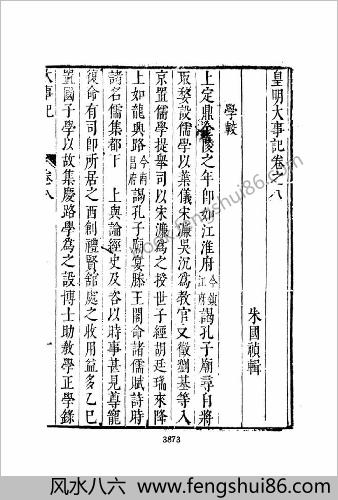 皇明大事記卷之八
朱國禎輯
學較
上定鼎金陵之年卽幸江淮府今鎮江府謁孔子廟尋自將
取婺設儒學以葉儀宋濂吳沉爲教官又徵劉基等入
京置儒學提舉司以宋濂爲之授世子經胡廷瑞來降
上如龍興路今南昌府謁孔子廟宴滕王閣命諸儒賦詩時
諸名儒集都下 上與論經史及咨以時事甚見尊寵
復命有司卽所居之西創禮賢舘處之收用益多乙巳
置國子學以故集慶路學爲之設博士助教學正學錄
大事記
卷八
一
3873
www.fengshui86.com
风水八六 - www.fengshui86.com